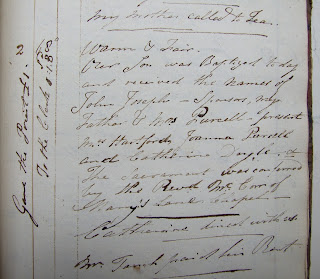 my Mother called to Tea.
Warm & Fair.
Our Son was Baptized today
and received the names of
John Joseph - Sponsors, my
Father & Mrs Purcell - present
Mrs Hartford, Joanna Purcell
and Catherine Doyle. &
The Sacrament was conferred
by the Revd Mr of
Mary's Lane Chapel
Catherine dined with us
Mr paid his Rent
Gave the Priest £1.
To the Clerk